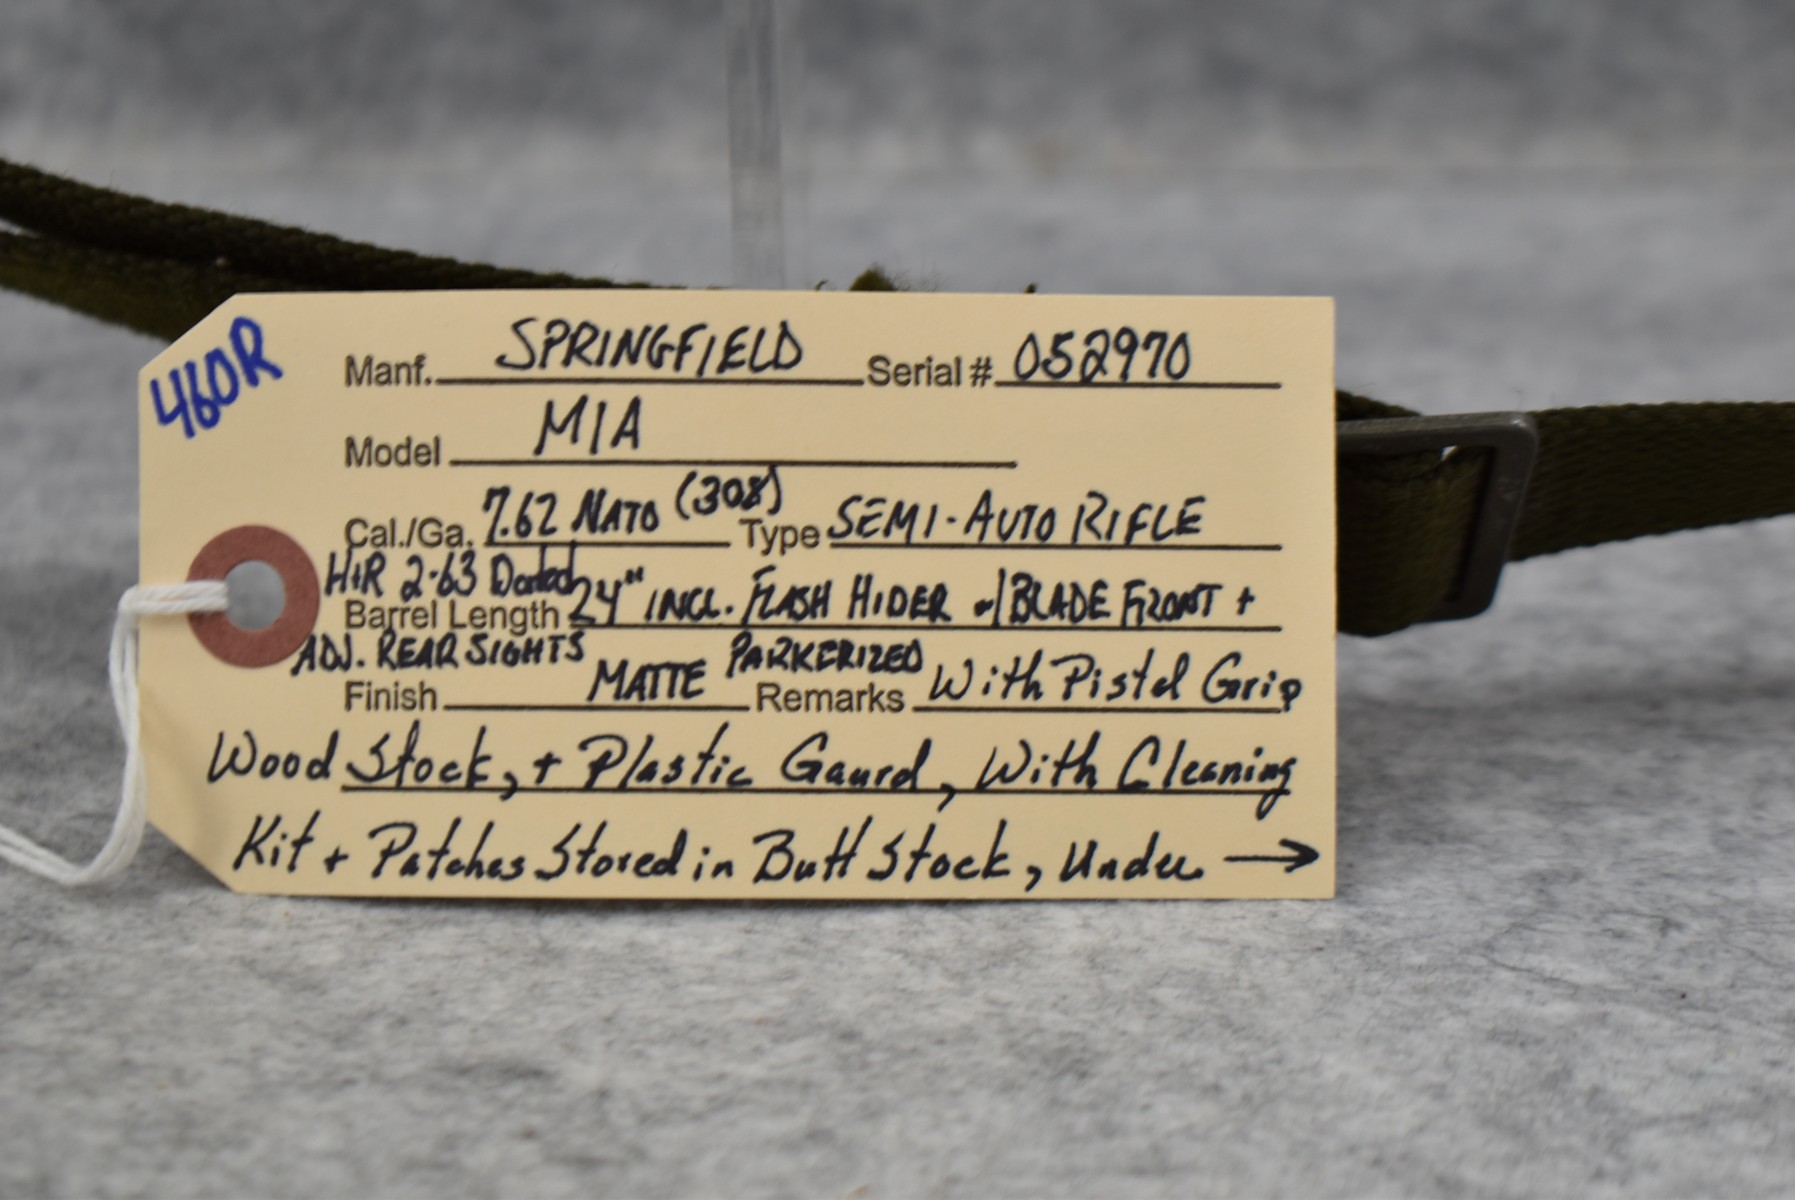 460R
Manf. SPRINGFIELD Serial # 052970
Model M1A
Cal./Ga. 7.62 NATO (308) Type SEMI-AUTO RIFLE
H+R 2-63 Dated
Barrel Length 24" INCL. FLASH HIDER w/BLADE FRONT +
ADJ. REAR SIGHTS
Finish MATTE PARKERIZED Remarks With Pistol Grip
Wood Stock, + Plastic Gaurd, With Cleaning
Kit + Patches Stored in Butt Stock, Under →